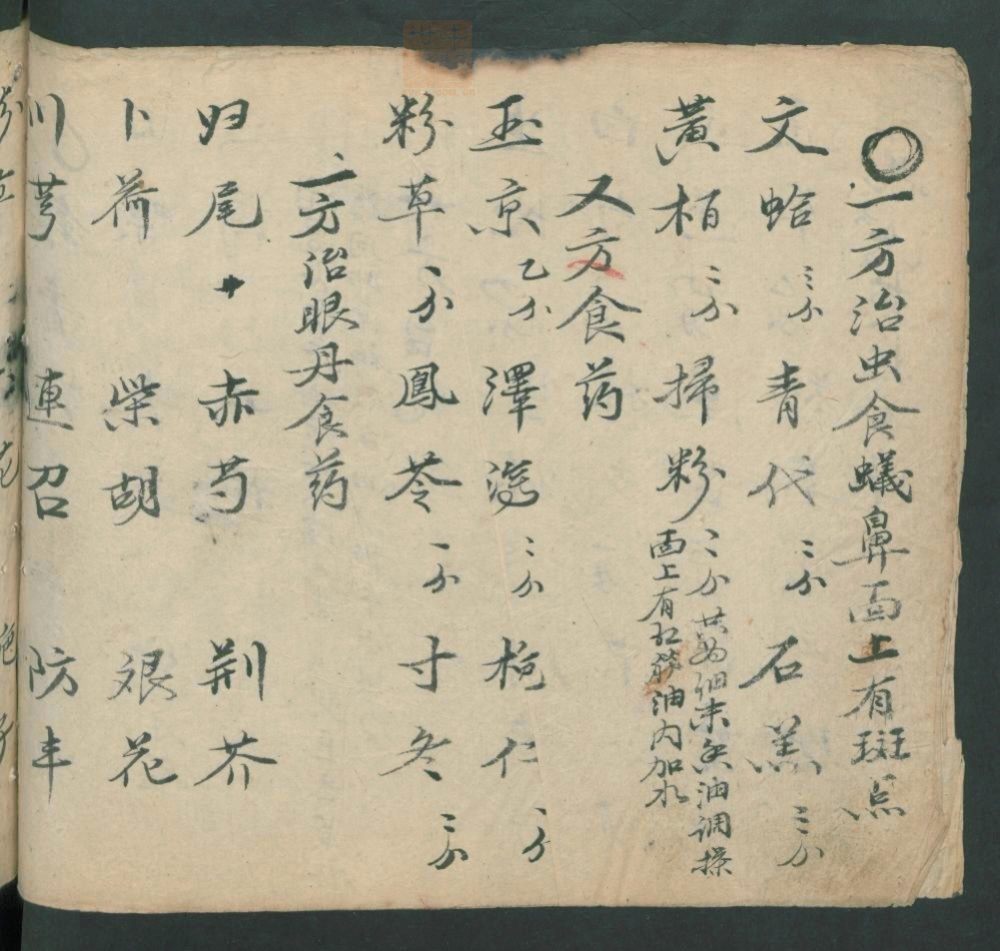 〇一方治虫食蟻鼻面上有斑点
文蛤三分青代二分石羔三分
黃栢三分掃粉二分共為細末魚油調搽
面上有紅筋油內加水
又方食药
玉京乙分澤瀉二分枙仁一分
粉草一分鳳苓一分寸冬二分
一方治眼丹食药
归尾十赤芍荆芥
卜荷柴胡艮花
川芎連召防丰